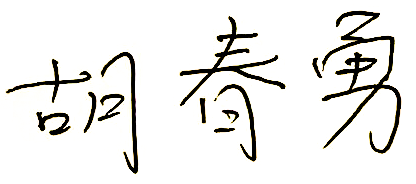 胡春勇